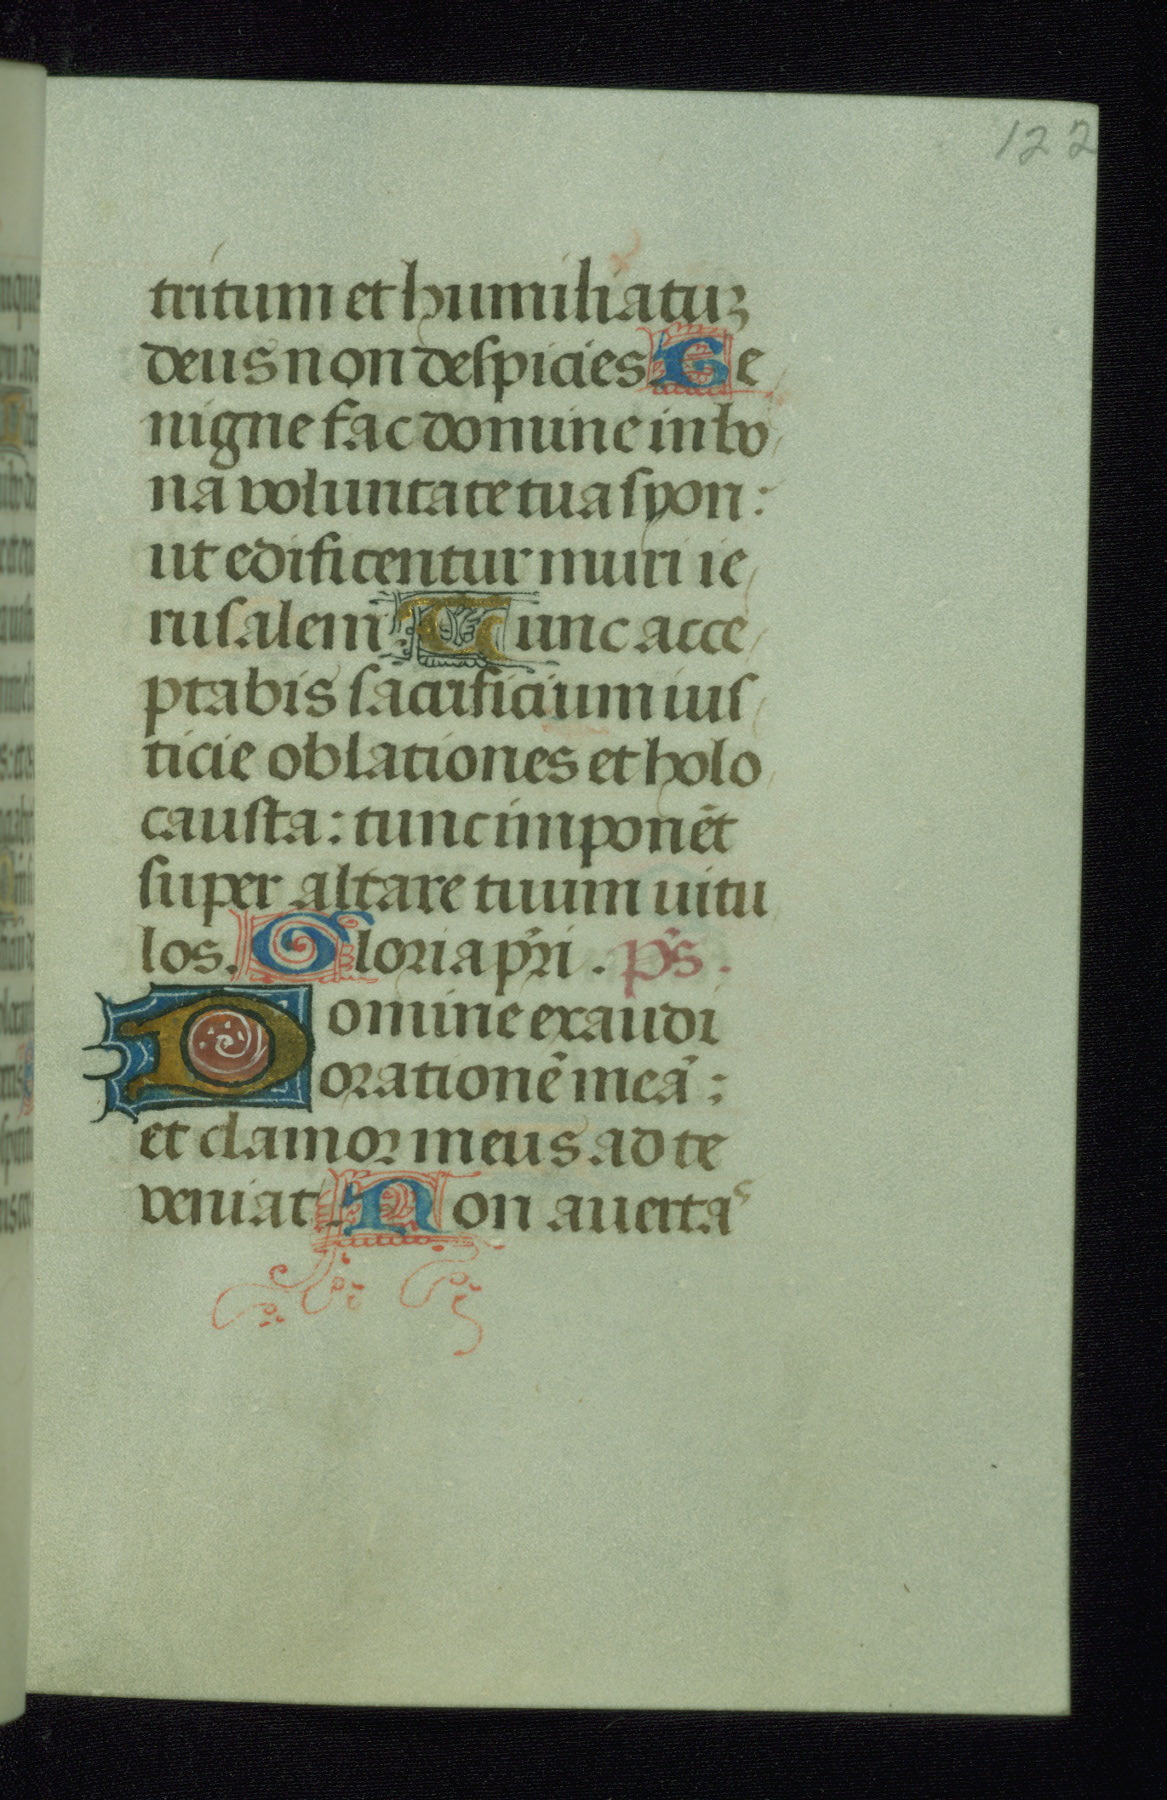 122
tritum et humiliatuʒ
deus non despicies Be
nigne fac domine in bo
na voluntate tua syon:
ut edificentur muri ie
rusalem Tunc acce
ptabis sacrificium ius
ticie oblationes et holo
causta: tunc imponēt
super altare tuum uitu
los. Gloria pr̄i. ps̄.
Domine exaudi
orationē meā:
et clamor meus ad te
veniat. Non auertas